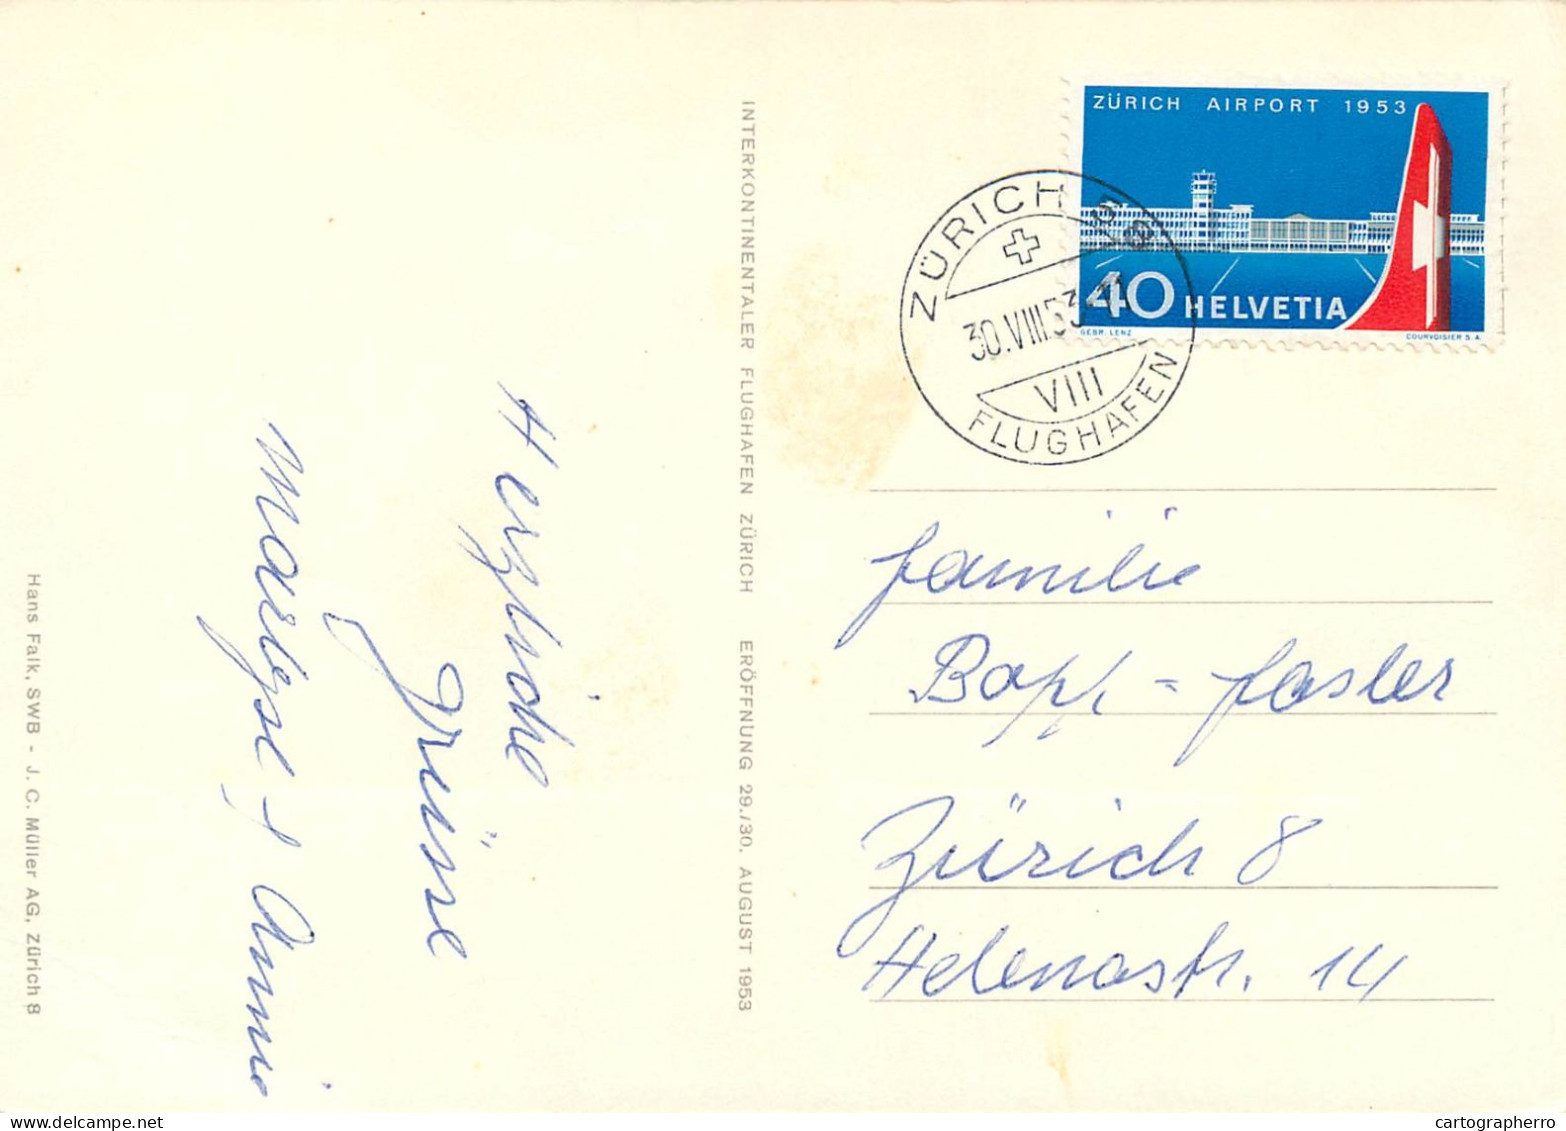 Herzliche
Grüsse
Marlyse + Anni
Hans Falk, SWB - J. C. Müller AG, Zürich 8
INTERKONTINENTALER FLUGHAFEN ZÜRICH ERÖFFNUNG 29./30. AUGUST 1953
ZÜRICH AIRPORT 1953
40 HELVETIA
GEBR. LENZ
COURVOISIER S. A.
ZÜRICH 58
30.VIII.53-11
VIII
FLUGHAFEN
Familie
Bopp - Fasler
Zürich 8
Helenastr. 14
cartographerro